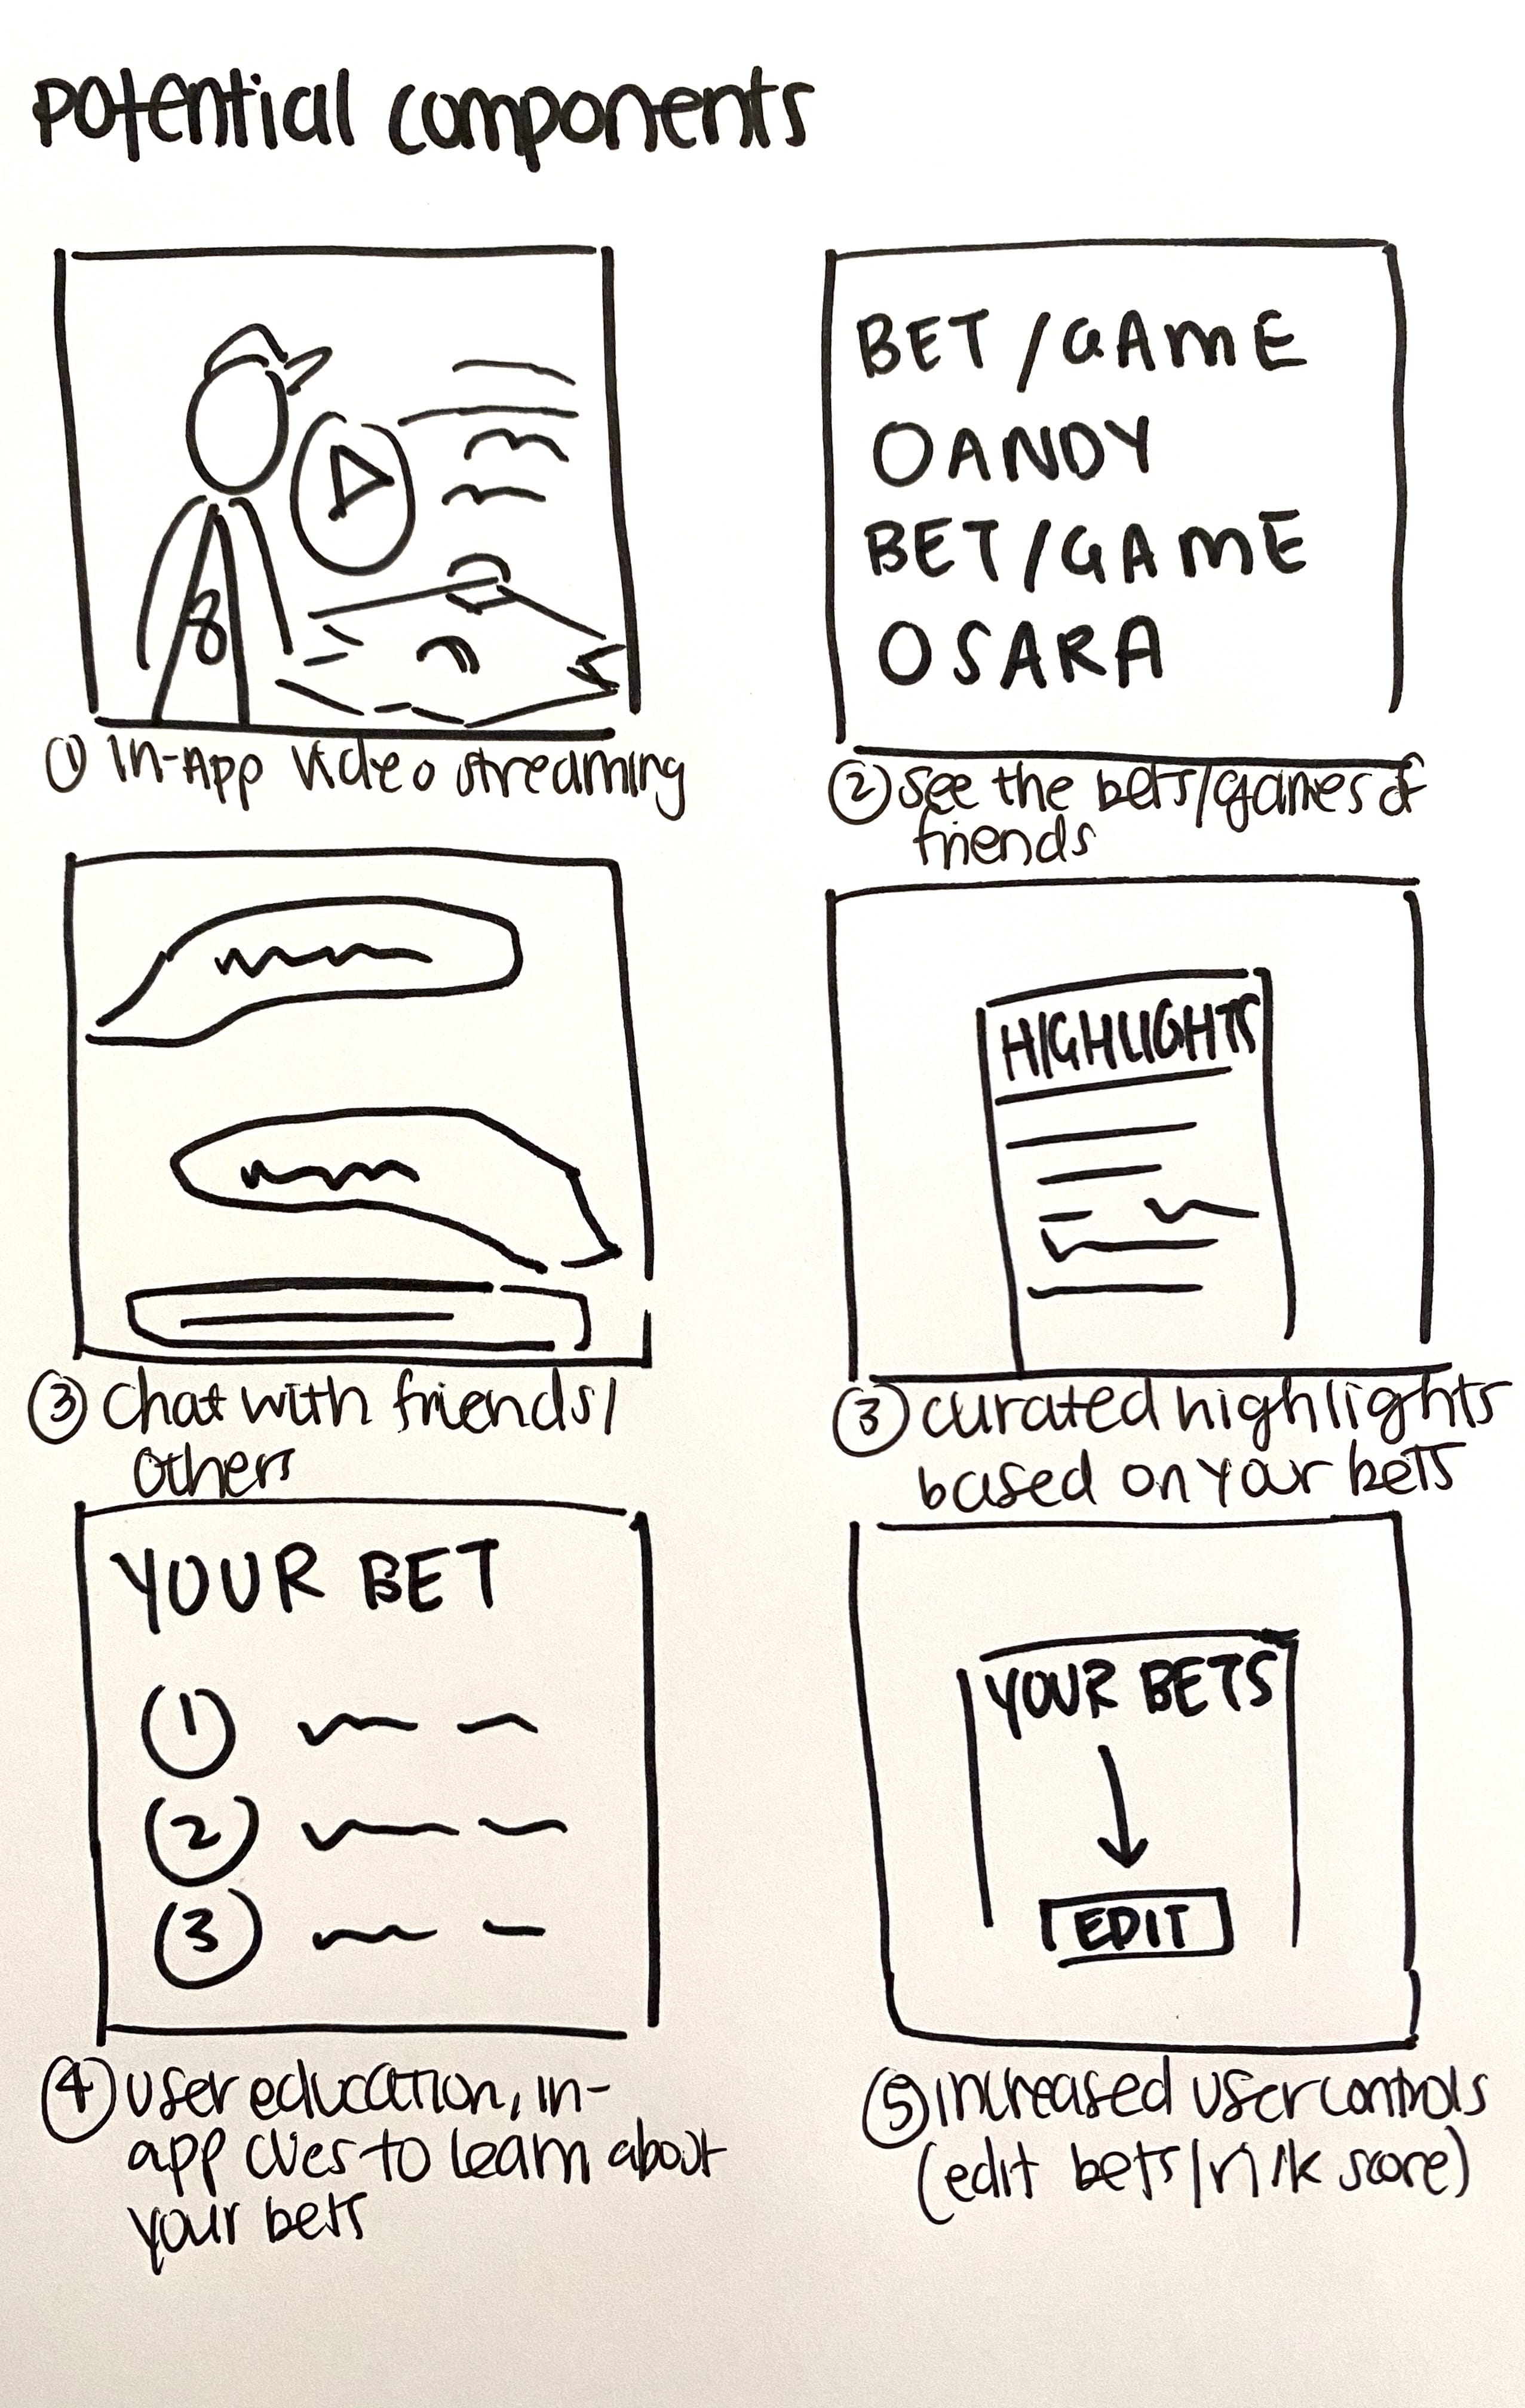 potential components
BET/GAME
O ANDY
BET/GAME
O SARA
① In-App video streaming
② see the bets/games of
friends
HIGHLIGHTS
③ chat with friends/
others
③ curated highlights
based on your bets
YOUR BET
① 
② 
③ 
YOUR BETS
EDIT
④ user education, in-
app cues to learn about
your bets
⑤ increased user controls
(edit bets/risk score)